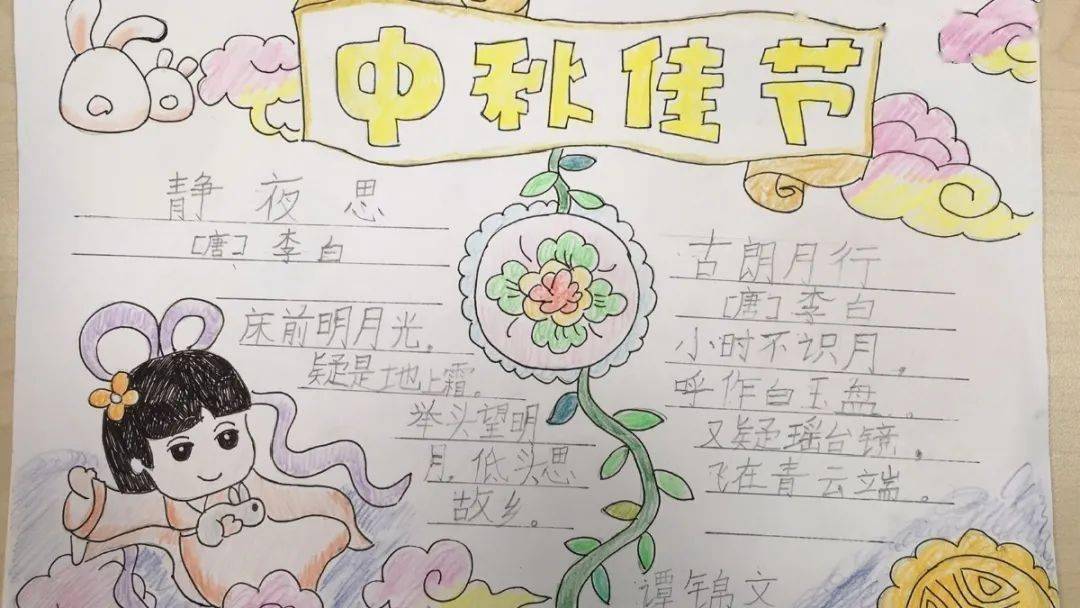 中秋佳节
静夜思
[唐] 李白
床前明月光。
疑是地上霜。
举头望明
月。低头思
故乡。
古朗月行
[唐] 李白
小时不识月。
呼作白玉盘。
又疑瑶台镜，
飞在青云端。
谭锦文